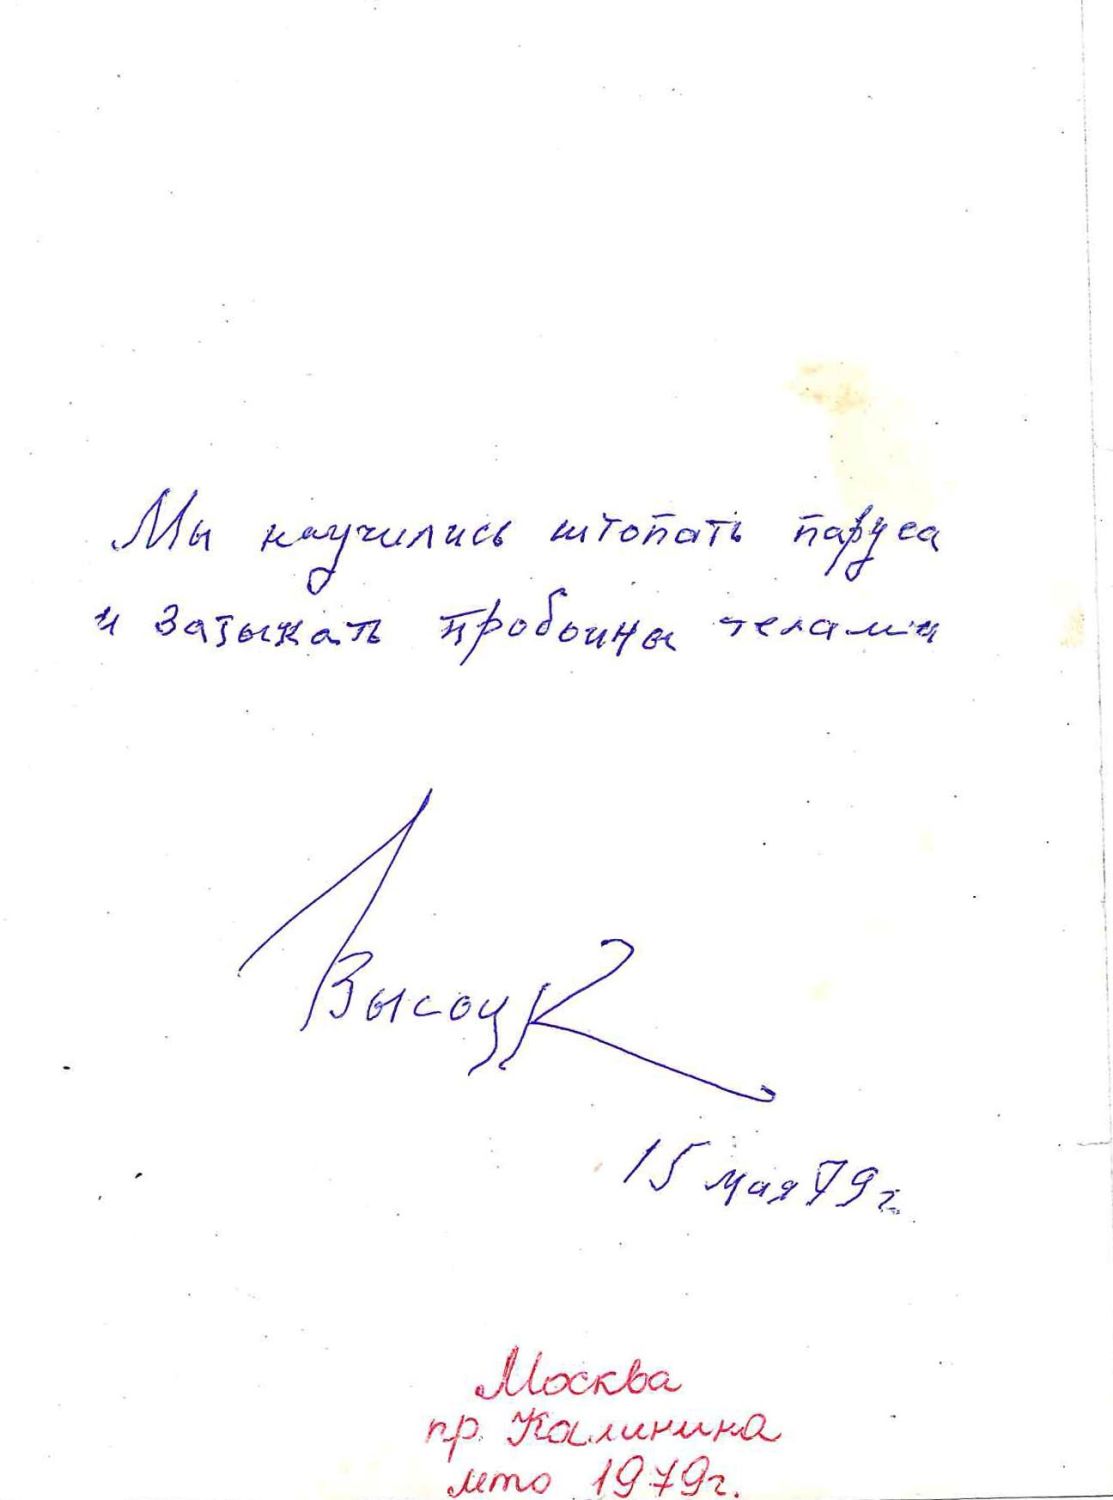 Мы научились штопать паруса
и затыкать пробоины телами
Высоцк
15 мая 79 г.
Москва
пр. Калинина
лето 1979г.